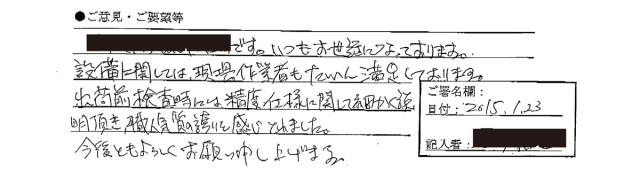 ●ご意見・ご要望等
です。いつもお世話になっております。
設備に関しては、現場作業者もたいへん満足しております。
出荷前検査時には、精度、仕様に関して細かく説
明頂き、職人気質の誇りを感じとれました。
今後ともよろしくお願い申し上げます。
ご署名欄:
日付: 2015.1.23
記入者: